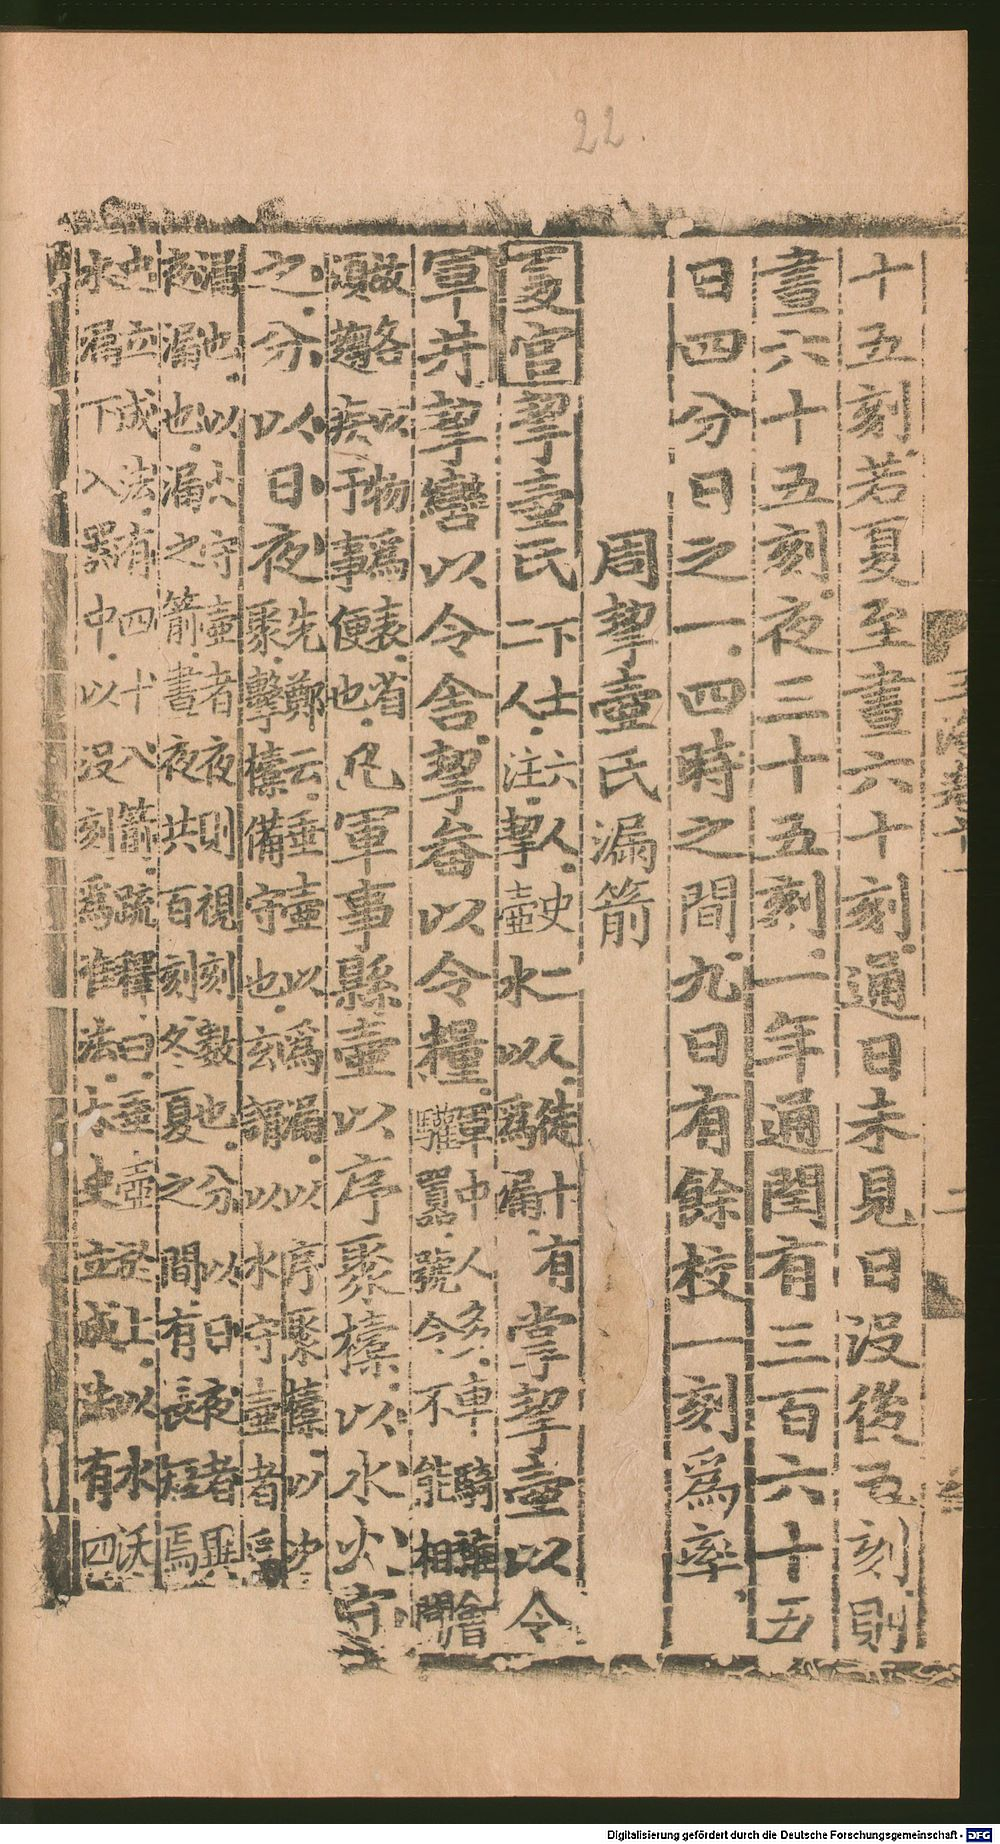 22.
十五刻若夏至晝六十刻通日未見日沒後五刻則
晝六十五刻夜三十五刻一年通閏有三百六十五
日四分日之一四時之間九日有餘校一刻爲率
周挈壺氏漏箭
夏官挈壺氏下士六人史二人徒十有
二人注挈壺水以爲漏
掌挈壺以令
軍井挈轡以令舍挈畚以令糧軍中人多車騎雜會
讙囂號令不能相聞
故略以物爲表省
煩趨疾于事便也凡軍事縣壺以序聚𣝔以水火守
之分以日夜先鄭云垂壺以爲漏以序聚𣝔以次
聚擊𣝔備守也玄謂以水守壺者爲
漏也以火守壺者夜則視刻數也分以日夜者異
夜漏也漏之箭晝夜共百刻冬夏之間有長短焉
史立成法有四十八箭疏釋曰垂壺於上以水沃
水漏下入器中以沒刻爲准法太史立成法有四
二
Digitalisierung gefördert durch die Deutsche Forschungsgemeinschaft - DFG